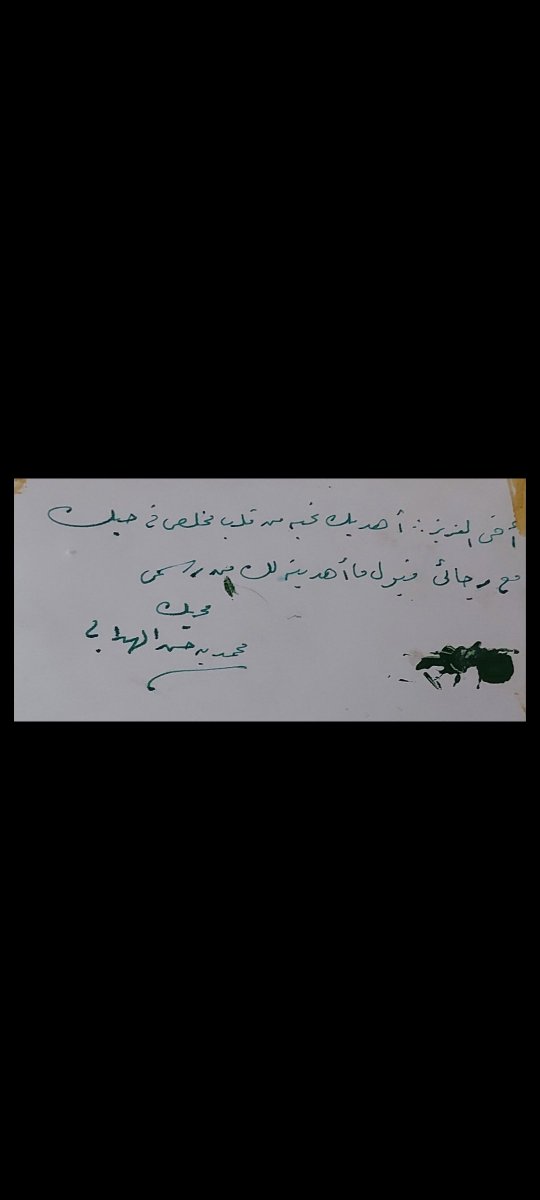 أخي العزيز : أهديك تحية من قلب مخلص في حبك
مع رجائي قبول ما أهديته لك من رسمي
محبك
محمد بن حسن